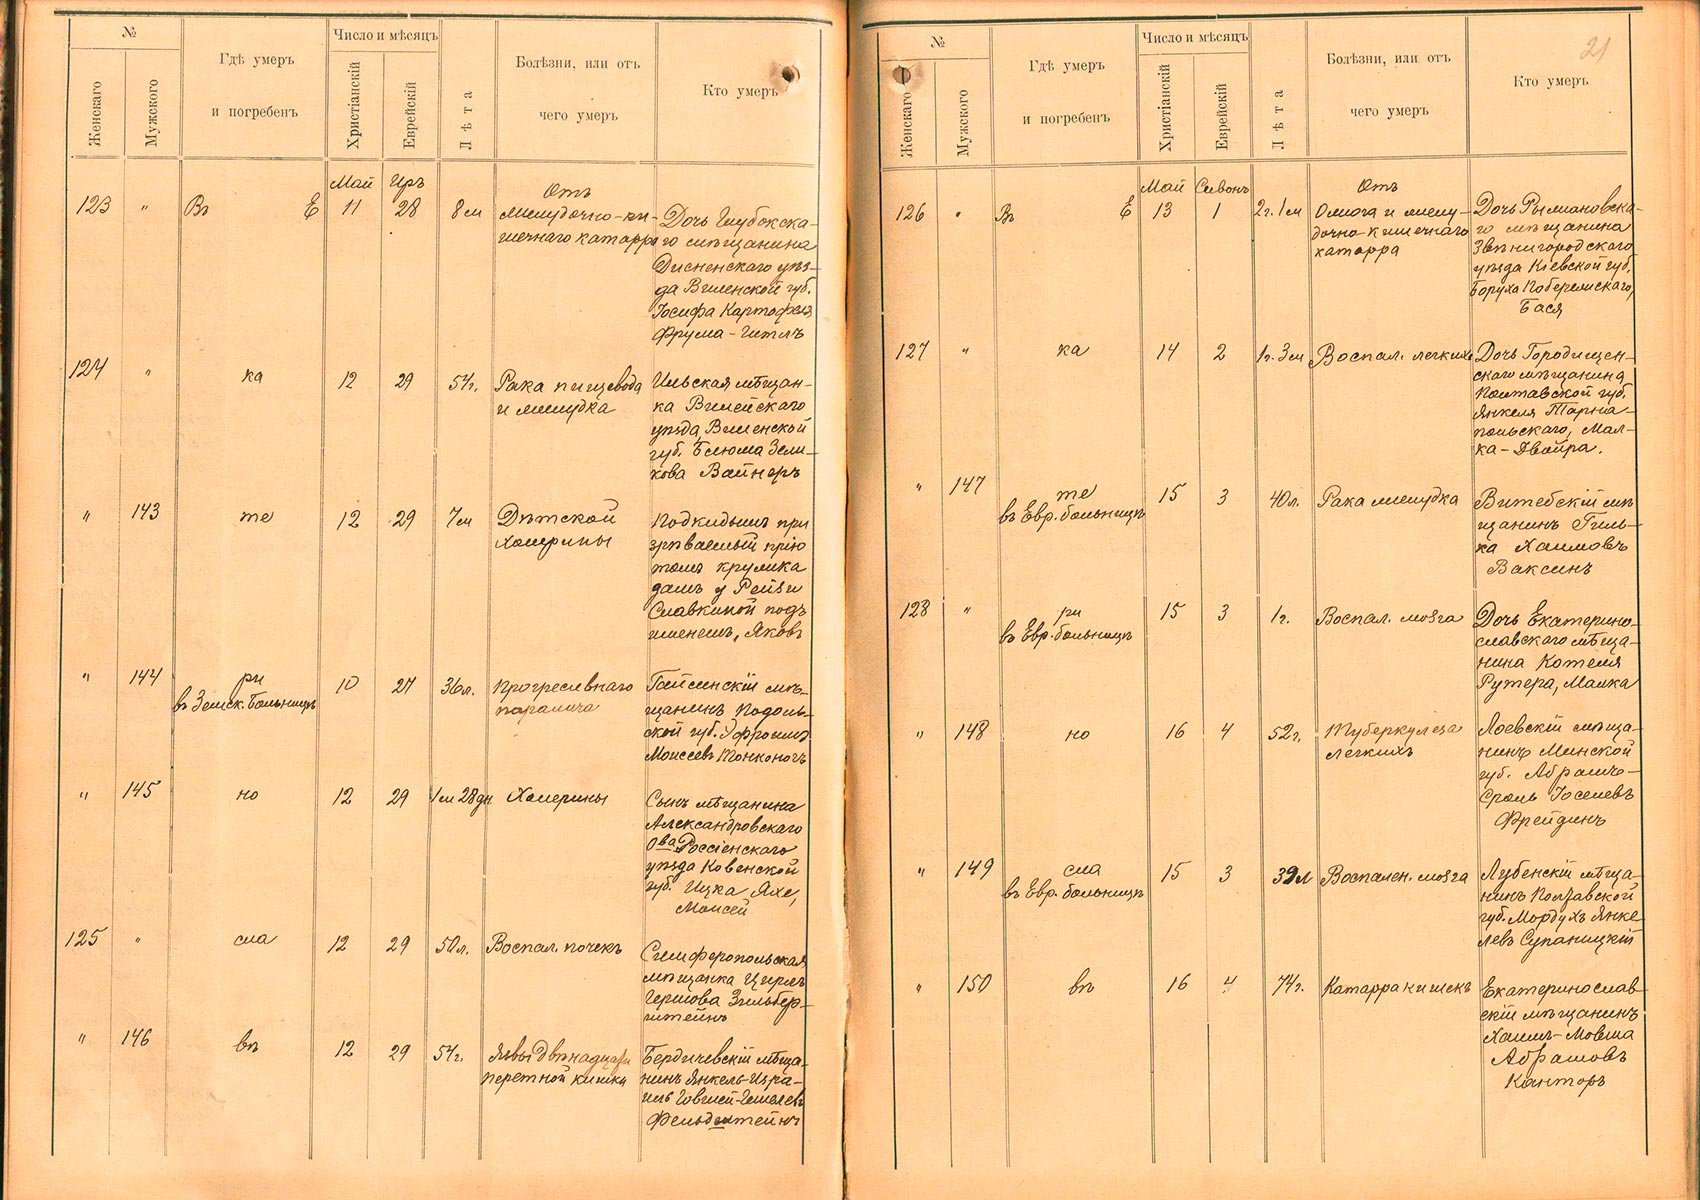 №
Женскаго
Мужского
Гдѣ умеръ
и погребенъ
Число и мѣсяцъ
Христіанскій
Еврейскій
Лѣта
Болѣзни, или отъ
чего умеръ
Кто умеръ
Май Іръ
123 " Въ Е 11 28 8 м
Отъ
желудочно-ки-
шечнаго катарра
Дочь Глубокска-
го мѣщанина
Дисненскаго уѣз-
да Виленской губ.
Іосифа Картофеля
Фрума-Гителъ
124 " ка 12 29 54 г.
Рака пищевода
и желудка
Ильская мѣщан-
ка Вилейскаго
уѣзда, Виленской
губ. Блюма Зели-
кова Вайнеръ
" 143 те 12 29 7 м
Дѣтской
холерины
Подкидышъ при
зрѣваемый прію
томъ круглика
дамъ у Рейзи
Славкиной подъ
именемъ, Яковъ
" 144 ри
въ Земск. Больницѣ
10 27 36 л.
Прогресивнаго
паралича
Гайсинскій мѣ-
щанинъ Подоль-
ской губ. Эфроимъ
Моисеевъ Тонконогъ
" 145 но 12 29 1 м 28 дн
Холерины
Сынъ мѣщанина
Александровскаго
О-ва Россіенскаго
уѣзда Ковенской
губ. Ицка Яхе,
Моисей
125 " сла 12 29 50 л.
Воспал. почекъ
Симферопольская
мѣщанка Цирля
Гершова Зильбер-
штейнъ
" 146 вѣ 12 29 54 г.
Язвы двѣнадцати
перстной кишки
Бердичевскій мѣща-
нинъ Янкель-Изра-
иль Говшей-Гешелевъ
Фельдштейнъ
21
№
Женскаго
Мужского
Гдѣ умеръ
и погребенъ
Число и мѣсяцъ
Христіанскій
Еврейскій
Лѣта
Болѣзни, или отъ
чего умеръ
Кто умеръ
Май Сивонъ
126 " Въ Е 13 1 2 г. 1 м
Отъ
Ожога и желу-
дочно-кишечнаго
катарра
Дочь Рыжановска-
го мѣщанина
Звѣнигородскаго
уѣзда Кіевской губ.
Боруха Побережскаго,
Бася
127 " ка 14 2 1 г. 3 м
Воспал. легкихъ
Дочь Городищен-
скаго мѣщанина
Полтавской губ.
Янкеля Тарна-
польскаго, Мал-
ка-Двойра.
" 147 те
въ Евр. больницѣ
15 3 40 л.
Рака желудка
Витебскій мѣ
щанинъ Гиль-
ка Хаимовъ
Ваксинъ
128 " ри
въ Евр. больницѣ
15 3 1 г.
Воспал. мозга
Дочь Екатерино-
славскаго мѣща-
нина Котеля
Рутера, Малка
" 148 но 16 4 52 г.
Туберкулеза
легкихъ
Лоевскій мѣща-
нинъ Минской
губ. Абрамъ-
Сроль Іоселевъ
Фрейдинъ
" 149 сла
въ Евр. больницѣ
15 3 39 л
Воспален. мозга
Лубенскій мѣща-
нинъ Полтавской
губ. Мордухъ Янке
левъ Супаницкій
" 150 вѣ 16 4 74 г.
Катарра кишекъ
Екатеринослав-
скій мѣщанинъ
Хаимъ-Мовша
Абрамовъ
Канторъ